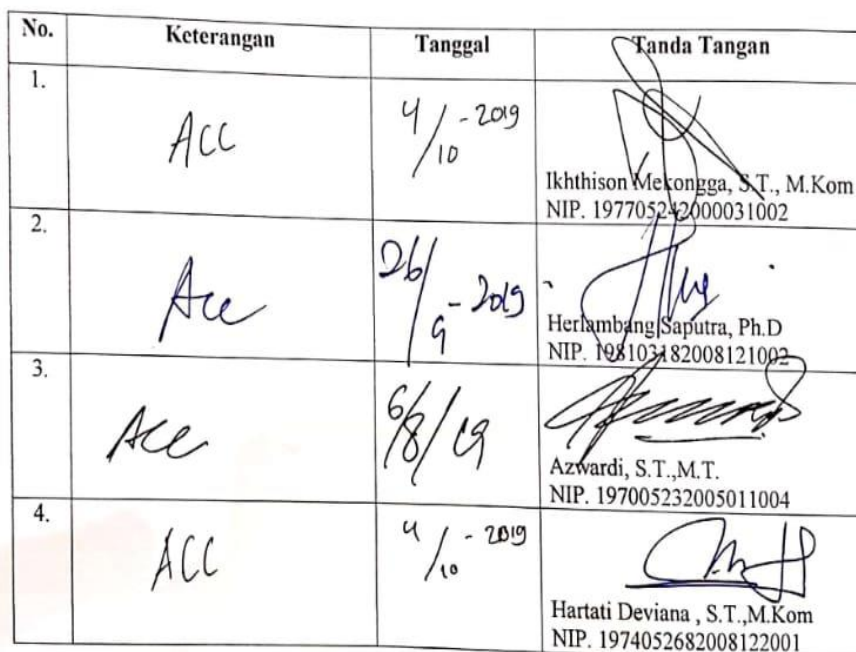 No. Keterangan Tanggal Tanda Tangan
1. ACC 4/10-2019
Ikhthison Mekongga, S.T., M.Kom
NIP. 197705242000031002
2. Acc 26/9-2019
Herlambang Saputra, Ph.D
NIP. 198103182008121002
3. Acc 6/8/19
Azwardi, S.T.,M.T.
NIP. 197005232005011004
4. ACC 4/10-2019
Hartati Deviana , S.T.,M.Kom
NIP. 1974052682008122001